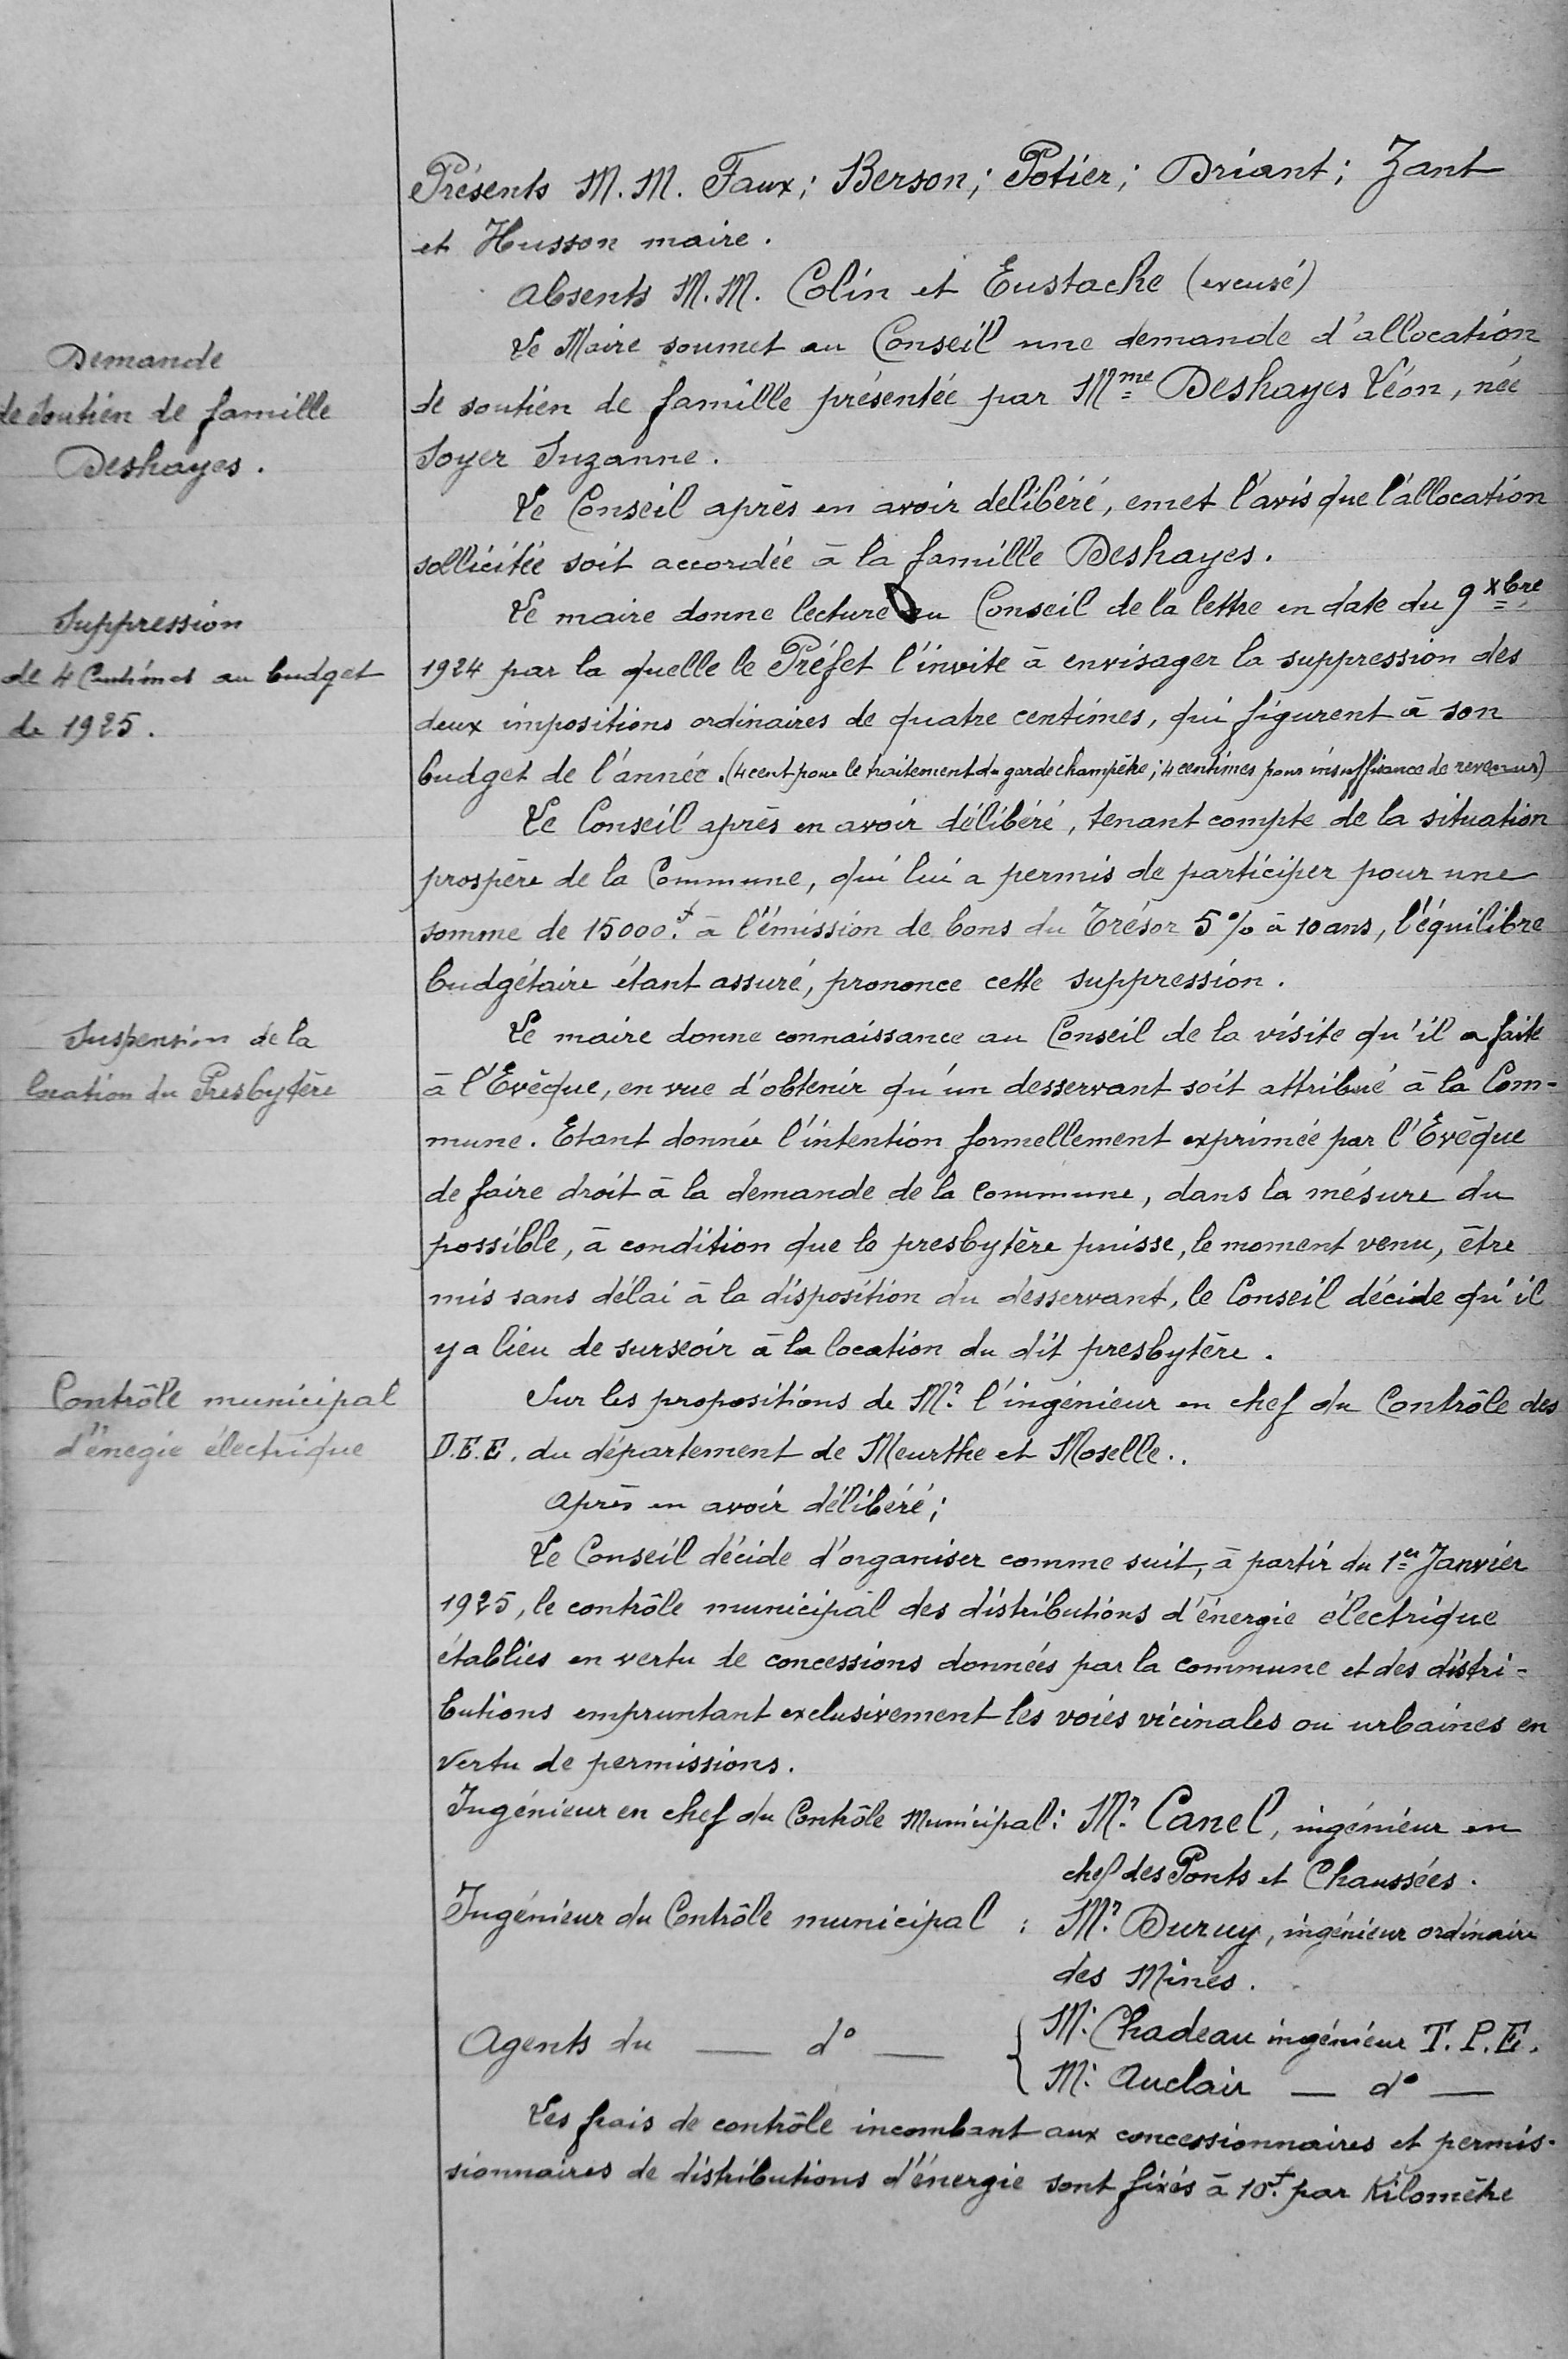 Présents M.M. Faux; Berson; Potier; Driant; Zant
et Husson maire.
Absents M.M. Colin et Eustache (excusé)
Demande
de soutien de famille
Deshayes.
Le Maire soumet au Conseil une demande d'allocation
de soutien de famille présentée par Mme Deshayes Léon, née
Soyer Suzanne.
Le Conseil après en avoir delibéré, emet l'avis que l'allocation
sollicitée soit accordée à la famille Deshayes.
Suppression
de 4 Centimes au budget
de 1925.
Le maire donne lecture au Conseil de la lettre en date du 9 Xbre
1924 par la quelle le Préfet l'invite à envisager la suppression des
deux impositions ordinaires de quatre centimes, qui figurent à son
budget de l'année. (4 cent pour le traitement du garde champêtre; 4 centimes pour insuffisance de revenus)
Le Conseil après en avoir délibéré, tenant compte de la situation
prospère de la Commune, qui lui a permis de participer pour une
somme de 15000f. à l'émission de bons du Trésor 5% à 10 ans, l'équilibre
budgétaire étant assuré, prononce cette suppression.
Suspension de la
location du Presbytère
Le maire donne connaissance au Conseil de la visite qu'il a faite
à l'Evêque, en vue d'obtenir qu'un desservant soit attribué à la Com-
mune. Etant donnée l'intention formellement exprimée par l'Evêque
de faire droit à la demande de la commune, dans la mésure du
possible, à condition que le presbytère puisse, le moment venu, être
mis sans délai à la disposition du desservant, le Conseil décide qu'il
y a lieu de surseoir à la location du dit presbytère.
Contrôle municipal
d'énegie électrique
Sur les propositions de Mr. l'ingénieur en chef du Contrôle des
D.E.E. du département de Meurthe et Moselle..
Après en avoir délibéré;
Le Conseil décide d'organiser comme suit, à partir du 1er Janvier
1925, le contrôle municipal des distributions d'énergie électrique
établies en vertu de concessions données par la commune et des distri-
butions empruntant exclusivement les voies vicinales ou urbaines en
vertu de permissions.
Ingénieur en chef du Contrôle Municipal: Mr. Canel, ingénieur en
chef des Ponts et Chaussées.
Ingénieur du Contrôle municipal : Mr. Duruy, ingénieur ordinaire
des Mines.
Agents du — d° — { M. Chadeau ingénieur T.P.E.
M. Auclair — d° —
Les frais de contrôle incombant aux concessionnaires et permis-
sionnaires de distributions d'énergie sont fixés à 10f. par Kilomètre